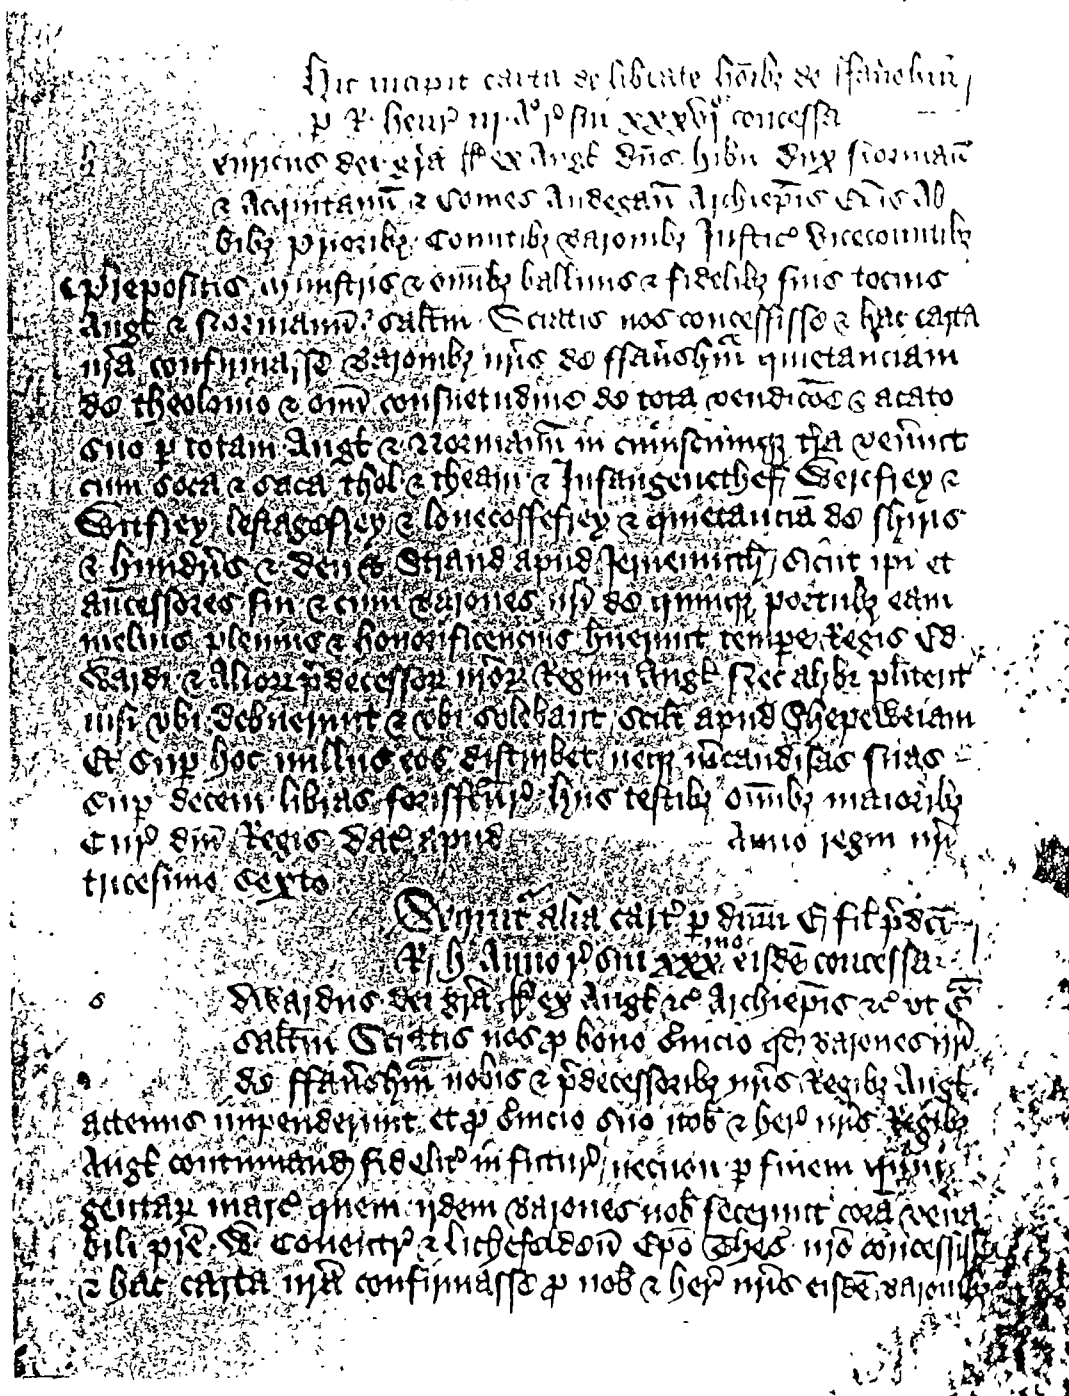 Hic incipit carta de libtate hoibz de ffavshm
p R Henr iij Aº rº sui xxxvjº concessa
h enricus dei gra Rex Angl dns hibn dux Normann
& Acquitann & Comes Andegau Archiepis Epis Ab
bibz prioribz Comitibz Baronibz Justic Vicecomitibz
prepositis ministris & omibz ballivis & fidelibz suis tocius
Angl & Normann saltm Sciatis nos concessisse & hac carta
nra confirmasse Baronibz nris de ffavshm quietanciam
de theolonio & omi consuetudine de tota vendicoe & acato
suo p totam Angl & Normann in cuiuscunqz tra venint
cum soca & saca thol & theam & Infangenethef Werefrey &
Witfrey lestagefrey & lovecoffefrey & quietancia de shiris
& hundris & den & Strand apud Jernemuth sicut ipi et
ancessores sui & cum Barones nri de quinqz portubz eam
melius plenius & honorificencius huerunt tempe Regis Ed
wardi & Aliorz pdecessorz nrorz Regum Angl Nec alibi plitent
nisi vbi debuerunt & vbi solebant scilt apud Shepeweiam
Et sup hoc nullus eos disturbet neqz mcandisas suas
sup decem libras forisfcur Hiis testibz omibz maioribz
Cur dni Regis Dat apud Anno regni nri
tricesimo sexto
Sequit alia cart p dnm E fil pdci
R H Anno rº sui xxxmo eisde concessa
e dwardus dei gra Rex Angl &c Archiepis &c vt sª
saltm Sciatis nos p bono svicio qd Barones nri
de ffavshm nobis & pdecessoribz nris Regibz Angl
actenus impenderunt et p svicio suo nob & her nris Regibz
Angl continuand fidelit in futur necnon p finem quin
gentar marc quem iidem Barones nob fecerunt cora vena
bili pre W Coventr & Lichefelden Epo Thes nro concessisse
& hac carta nra confirmasse p nob & her nris eisde Baronibz